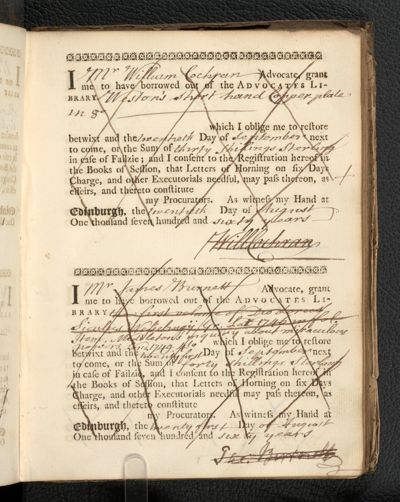 I Mr William Cochran Advocate, grant
me to have borrowed out of the ADVOCATES LI-
BRARY Weston's Short hand Copper plate
in 8o
which I oblige me to restore
betwixt and the twentieth Day of September next
to come, or the Sum of thirty Shillings Sterling
in case of Failzie; and I consent to the Registration hereof in
the Books of Session, that Letters of Horning on six Days
Charge, and other Executorials needful, may pass thereon, as
effeirs, and thereto constitute
my Procurators. As witness my Hand at
Edinburgh, the twentieth Day of August
One thousand seven hundred and sixty years
Will Cochran
I Mr James Burnett Advocate, grant
me to have borrowed out of the ADVOCATES LI-
BRARY the first volume of Diodorus
Siculus
Item, about miraculous
which I oblige me to restore
betwixt and the twenty first Day of September next
to come, or the Sum of forty Shillings Sterling
in case of Failzie; and I consent to the Registration hereof in
the Books of Session, that Letters of Horning on six Days
Charge, and other Executorials needful may pass thereon, as
effeirs, and thereto constitute
my Procurators. As witness my Hand at
Edinburgh, the twenty first Day of August
One thousand seven hundred and sixty years
Jas. Burnett